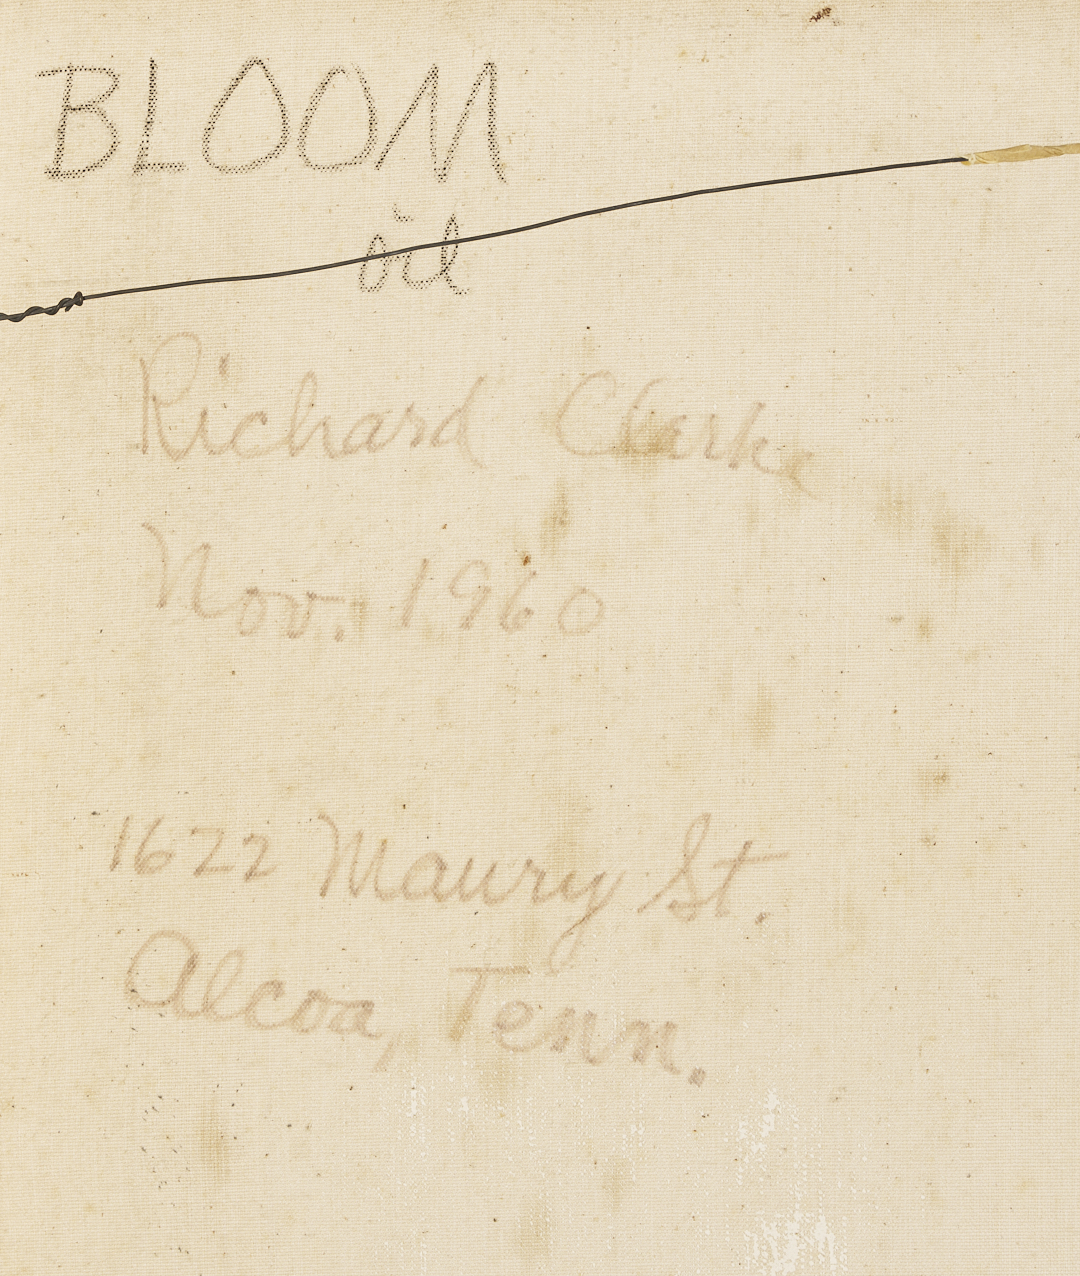 BLOOM
oil
Richard Clarke
Nov. 1960
1622 Maury St.
Alcoa, Tenn.